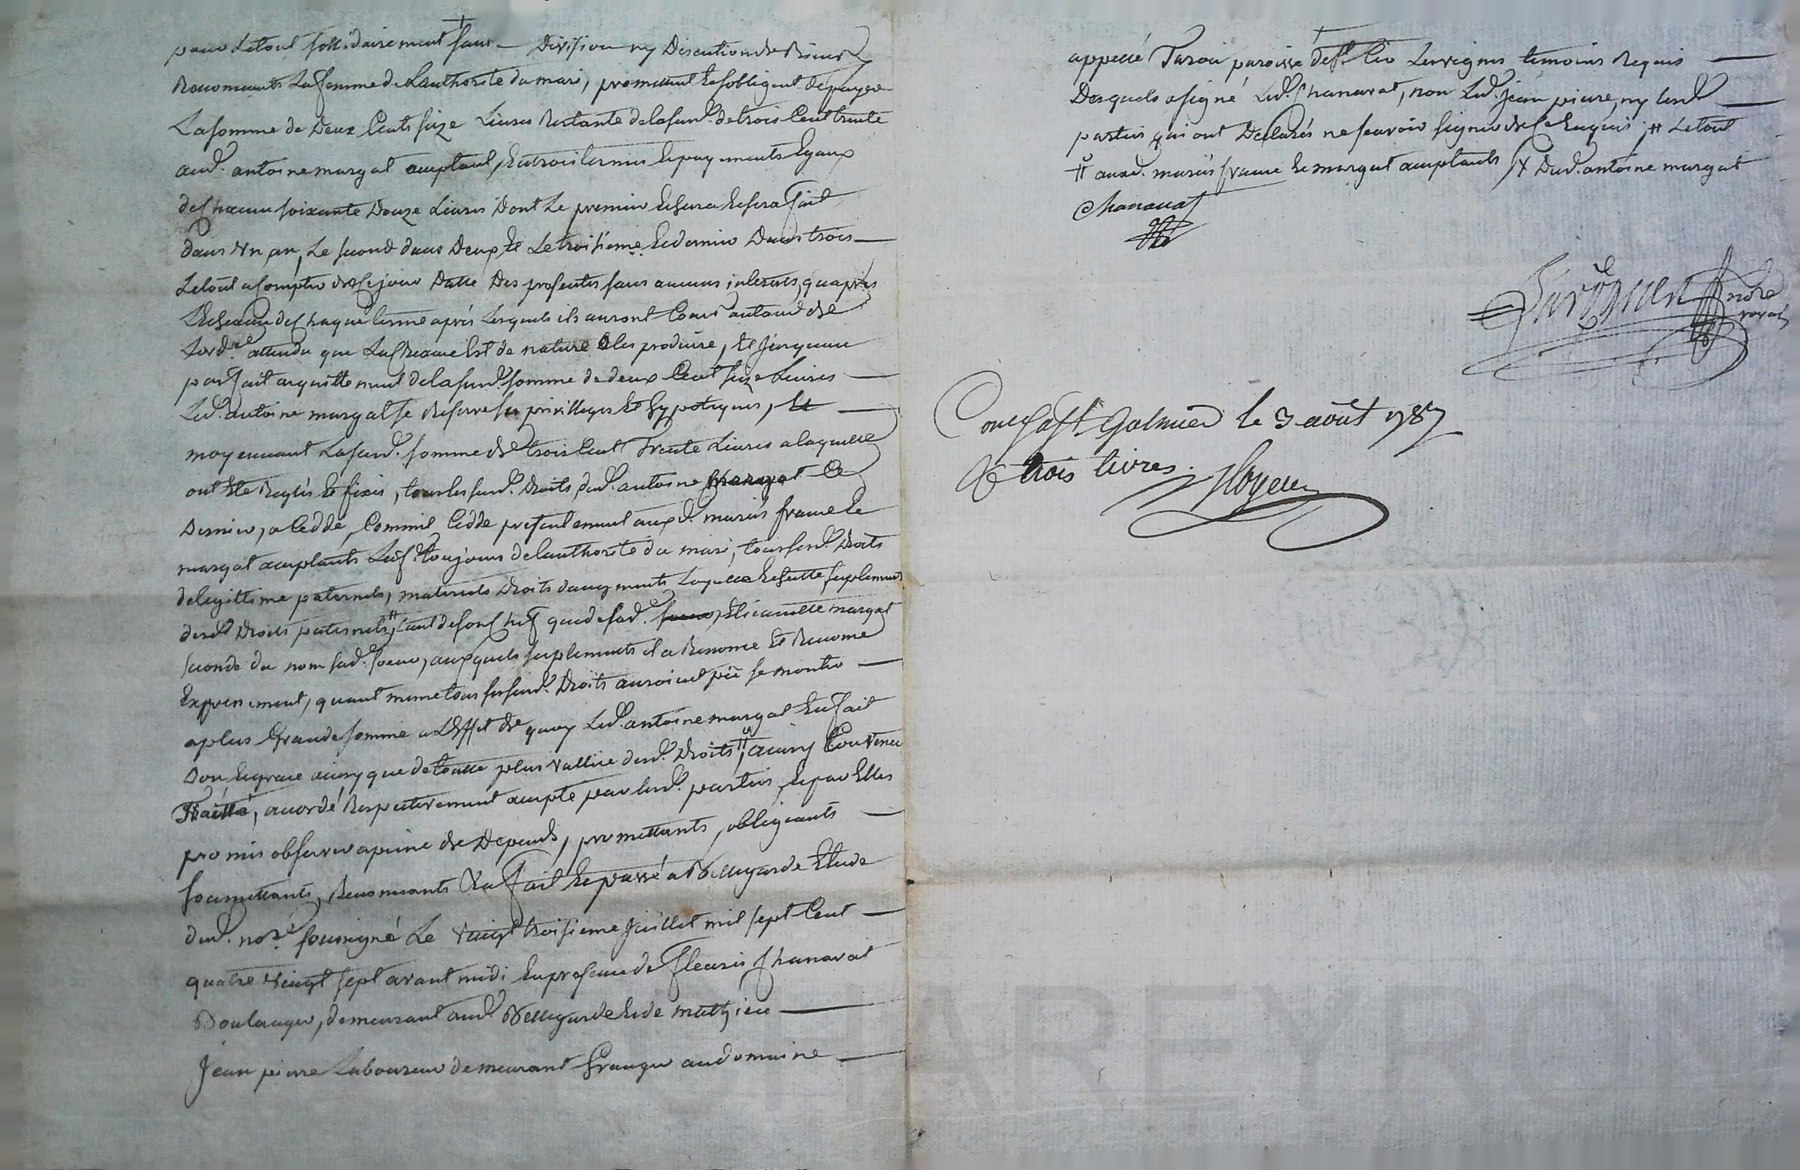 pour Letout sollidairement sans Division ny Discution de Biens
Renonceants La femme de Lauthorité du mari, promettent Et sobligent de payer
La somme de Deux Cents seize Livres Restante de lasusd. de trois Cent trente
aud. antoine margat acceptant, En trois termes Et payements Egaux
de Chacun soixante Douze Livres Dont Le premier Echera Et sera fait
dans Un an, Le second dans Deux Et Le troisieme Et dernier Dans trois
Letout a Compter de Ce jour Datte Des presentes sans aucuns interets, quapres
LEcheance de Chaque terme après Lesquels ils auront Cours autaud de
Lord.re attendu que La Creance Est de nature a Les produire, Et jusquau
parfait acquittement de lasusd. somme de deux Cent seize Livres
Led. antoine margat se Reserve ses privilleges Et hypoteques, Et
moyennant Lasusd. somme de trois Cent trente Livres a laquelle
ont Eté Reglés Et fixés, tous les susd. Droits dud. antoine margat Ce
Dernier, a Ceddé, Comme il Cedde presentement auxd. mariés frame Et
margat acceptants Lad. toujours de Lauthorité du mari, tous sesd. Droits
de legittime paternels, maternels Droits daugments Et suplement
desd. Droits paternels, tant de son Chef que de fad. Etiennette margat
seconde du nom sad. soeur, auxquels suplements il a Renoncé Et Renonce
Expressement, quant meme tous ses susd. Droits auroient pû se monter
a plus Grande somme a LEffet de quoy Led. antoine margat En fait
Don En grace ainsy que de toutte plus Vallue desd. Droits, ainsy Convenu
Traitté, accordé Respectivement accepté par lesd. parties, Et par Elles
promis observer a peine de Depends, promettants, obligeants
soumettants, Renonceants &a fait Et passé a Bellegarde Etude
dud. no.re soussigné Le Vingt troisieme juillet mil sept Cent
quatre Vingt sept avant midi En presence de fleuris Chanavat
Boulanger, demeurant aud. Bellegarde Et de mathieu
Jean pierre Laboureur demeurant Granger au domaine
appellé Turou paroisse de St. Cir Les vignes temoins Requis
Desquels a signé Led. Chanavat, non Led. jean pierre, ny lesd.
parties qui ont Declarés ne scavoir signer de Ce Enquis, # Letout
# auxd. mariés frame Et margat acceptants X Dud. antoine margat
Chanavat
no.re
royal
Con.lé a St. Galmier le 3 août 1787
R trois livres.